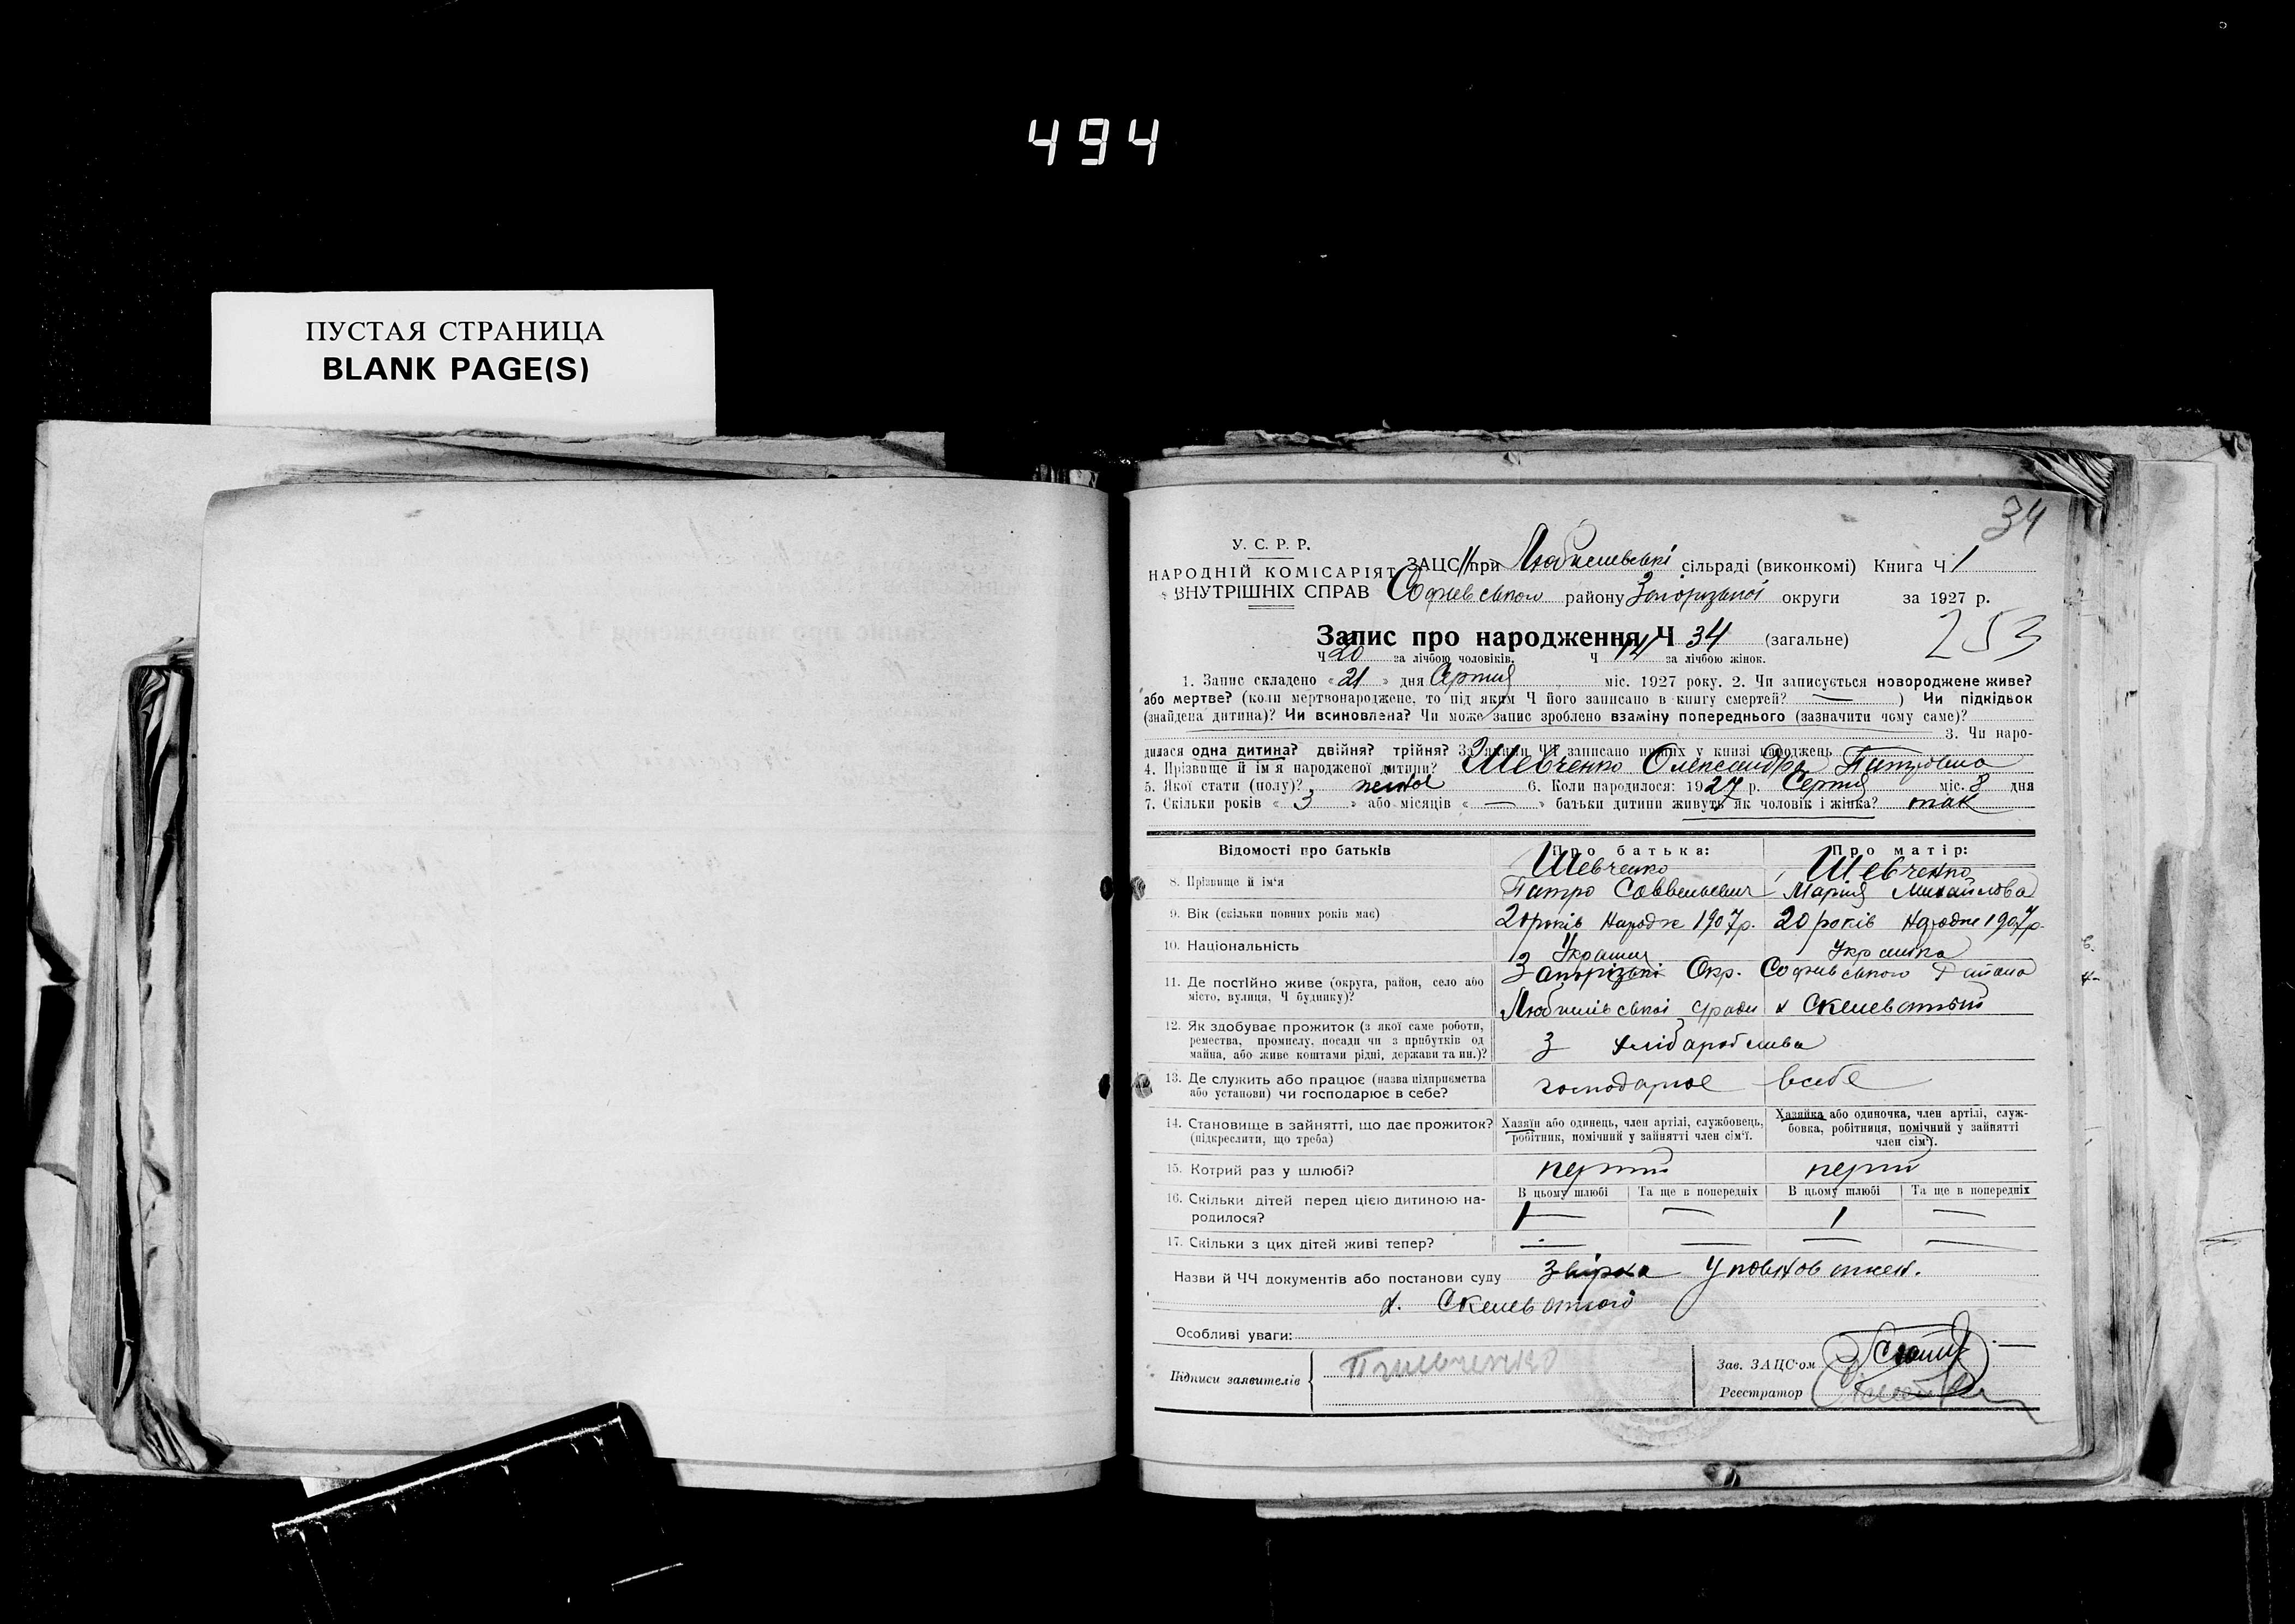 494
ПУСТАЯ СТРАНИЦА
BLANK PAGE(S)
34
У. С. Р. Р.
НАРОДНІЙ КОМІСАРІЯТ
ВНУТРІШНІХ СПРАВ
ЗАЦС при сільраді (виконкомі) Книга Ч 1
району округи за 1927 р.
Запис про народження Ч 34 (загальне)
253
Ч 20 за лічбою чоловіків. Ч 14 за лічбою жінок.
1. Запис складено « 21 » дня Серпня міс. 1927 року. 2. Чи записується новороджене живе?
або мертве? (коли мертвонароджене, то під яким Ч його записано в книгу смертей? — ) Чи підкідьок
(знайдена дитина)? Чи всиновлена? Чи може запис зроблено взаміну попереднього (зазначити чому саме)?
3. Чи наро-
дилася одна дитина? двійня? трійня? За якими ЧЧ записано инших у книзі народжень
4. Прізвище й ім'я народженої дитини? Шевченко Олександра Патровна
5. Якої стати (полу)? 6. Коли народилося: 1927 р. Серпня міс. 8 дня
7. Скільки років « 3 » або місяців « — » батьки дитини живуть як чоловік і жінка? так
Відомості про батьків
Про батька:
Про матір:
8. Прізвище й ім'я
Шевченко
Шевченко
Патро Саввельевич
Мария Михайловa
9. Вік (скільки повних років має)
20 років Народже 1907 р.
20 років Народже 1907 р.
10. Національність
Украинка
11. Де постійно живе (округа, район, село або
місто, вулиця, Ч будинку)?
Запорізькі Окр. Софиевського Района
х Скелеватий
12. Як здобуває прожиток (з якої саме роботи,
ремества, промислу, посади чи з прибутків од
майна, або живе коштами рідні, держави та ин.)?
З хлібаробства
13. Де служить або працює (назва підприємства
або установи) чи господарює в себе?
господарює всебе
14. Становище в зайнятті, що дає прожиток?
(підкреслити, що треба)
Хазяїн або одинець, член артілі, службовець,
робітник, помічний у зайнятті член сім'ї.
Хазяйка або одиночка, член артілі, служ-
бовка, робітниця, помічний у зайнятті
член сім'ї.
15. Котрий раз у шлюбі?
16. Скільки дітей перед цією дитиною на-
родилося?
В цьому шлюбі Та ще в попередніх В цьому шлюбі Та ще в попередніх
1 — — 1 —
17. Скільки з цих дітей живі тепер?
— — — —
Назви й ЧЧ документів або постанови суду
х. Скелеватого
Особливі уваги:
Підписи заявителів
Пшевченко
Зав. ЗАЦС'ом
Реєстратор